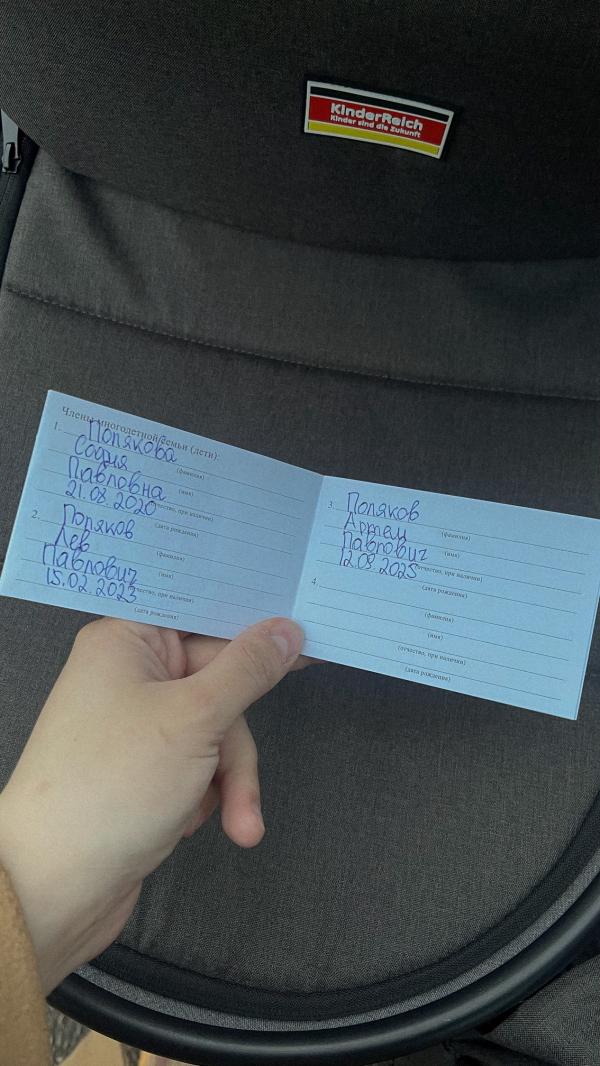 KinderReich
Kinder sind die Zukunft
Члены многодетной семьи (дети):
1. Полякова
(фамилия)
София
(имя)
Павловна
(отчество, при наличии)
21.08.2020
(дата рождения)
2. Поляков
(фамилия)
Лев
(имя)
Павлович
(отчество, при наличии)
15.02.2023
(дата рождения)
3. Поляков
(фамилия)
Артем
(имя)
Павлович
(отчество, при наличии)
12.08.2025
(дата рождения)
4.
(фамилия)
(имя)
(отчество, при наличии)
(дата рождения)